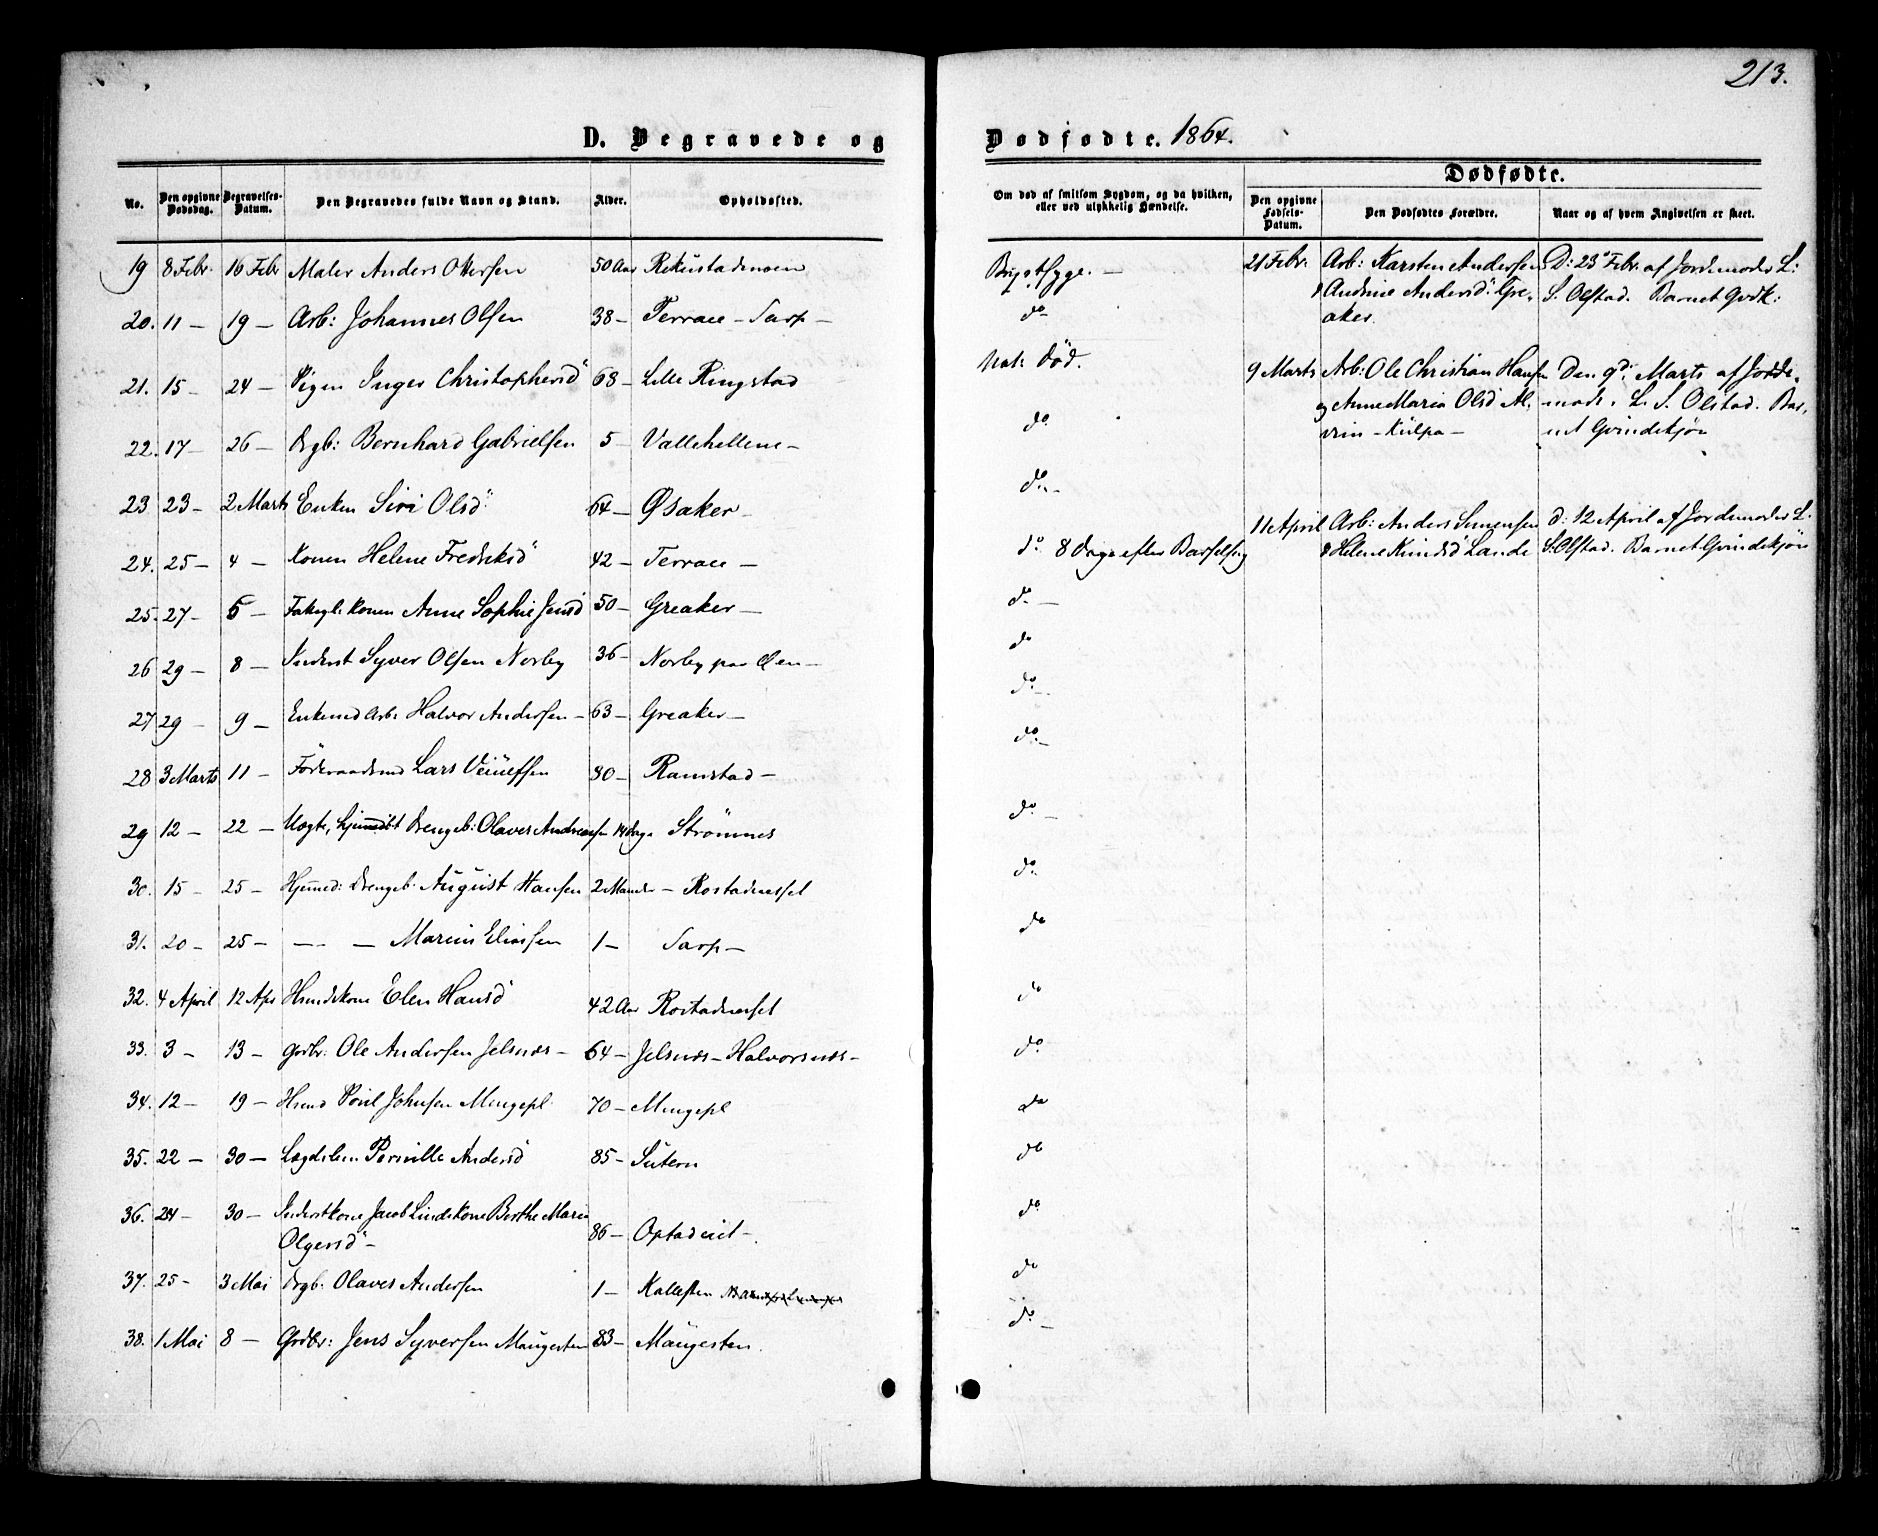 213.
D. Begravede og Dødfødte. 1864.
No. Den opgivne Dødsdag. Begravelses-Datum. Den Begravedes fulde Navn og Stand. Alder. Opholdssted.
Om død af smitsom Sygdom, og da hvilken, eller ved ulykkelig Hændelse.
Dødfødte.
Den opgivne Fødsels-Datum. Den Dødfødtes Forældre. Naar og af hvem Angivelsen er skeet.
19 8 Febr. 16 Febr Maler Anders Olsen 50 Aar
20. 11 — 19 — Arb: Johannes Olsen 38 — Terrace — Sarp —
21. 15 — 24 — Pigen Inger Christophersd 68 — Lille Ringstad
22. 17 — 26 — Drgb: Bernhard Gabrielsen 5 — Vallehellene —
23 23 — 2 Marts Enken Siri Olsd 64 — Øsaker —
24. 25 — 4 — Konen Helene Fredriksd 42 — Terrace —
25. 27 — 5 — Konen Anne Sophie Jensd 50 — Greaker —
26 29 — 8 — Inderst Syver Olsen Norby 36 — Norby paa Øen —
27 29 — 9 — Enkemd Arb: Halvor Andersen — 63 — Greaker —
28 3 Marts 11 — Föderaadsmd Lars 80 — Ramstad —
29 12 — 22 — Uægte, hjemedöbt Drengeb: Olaves Andreasen 14 Dage Strömnes
30. 15 — 25 — Hjemed: Drengeb. August Hansen 2 Maaneder — Rostadnesset
31. 20 — 25 — — — Marius Eliassen 1 — Sarp —
32. 4 April 12 Apr Huusmdskone Elen Hansd 42 Aar Rostadnesset
33. 3 — 13 — Grdbr: Ole Andersen Jelsnæs — 64 — Jelsnæs — Halvorsnæs —
34. 12 — 19 — Husmd Poul Johnsen Mingepl. 70 — Mingepl
35. 22 — 30 — Lægdslem Pernille Andersd 85 —
36. 24 — 30 — Inderstkone Jacob Lindekone Berthe Marie
Olgersd — 86 — Opstadeiet —
37. 25 — 3 Mai Drgb: Olaves Andersen 1 — Kallesten
38. 1 Mai 8 — Grdbr: Jens Syversen Maugesten 83 — Maugesten.
Brystsyge. —
do
Nat. Död.
do
do —
do 8 Dage efter Barselseng
do —
do
do —
do —
do —
do
do
do
do
do
do
do
do
do —
21 Febr. Arb: Karsten Andersen
& Andrine Andersd: Gre-
aker.
D: 23 Febr. af Jordemoder L:
S. Olstad. Barnet Qvdk:
9 Marts Arb: Ole Christian Hansen
og Anne Maria Olsd Al-
vim — Kulpa —
Den 9d: Marts af Jorde-
mod: L. S. Olstad. Bar-
net Qvindekjøn
11 April Arb: Anders Simensen
& Helene Knudsd Lande
d: 12 April af Jordemoder L.
S. Olstad. Barnet Qvindekjøn